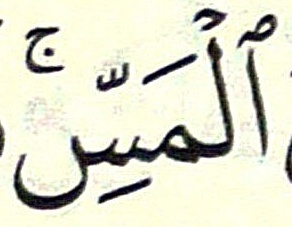 ٱلۡمَسِّۚ